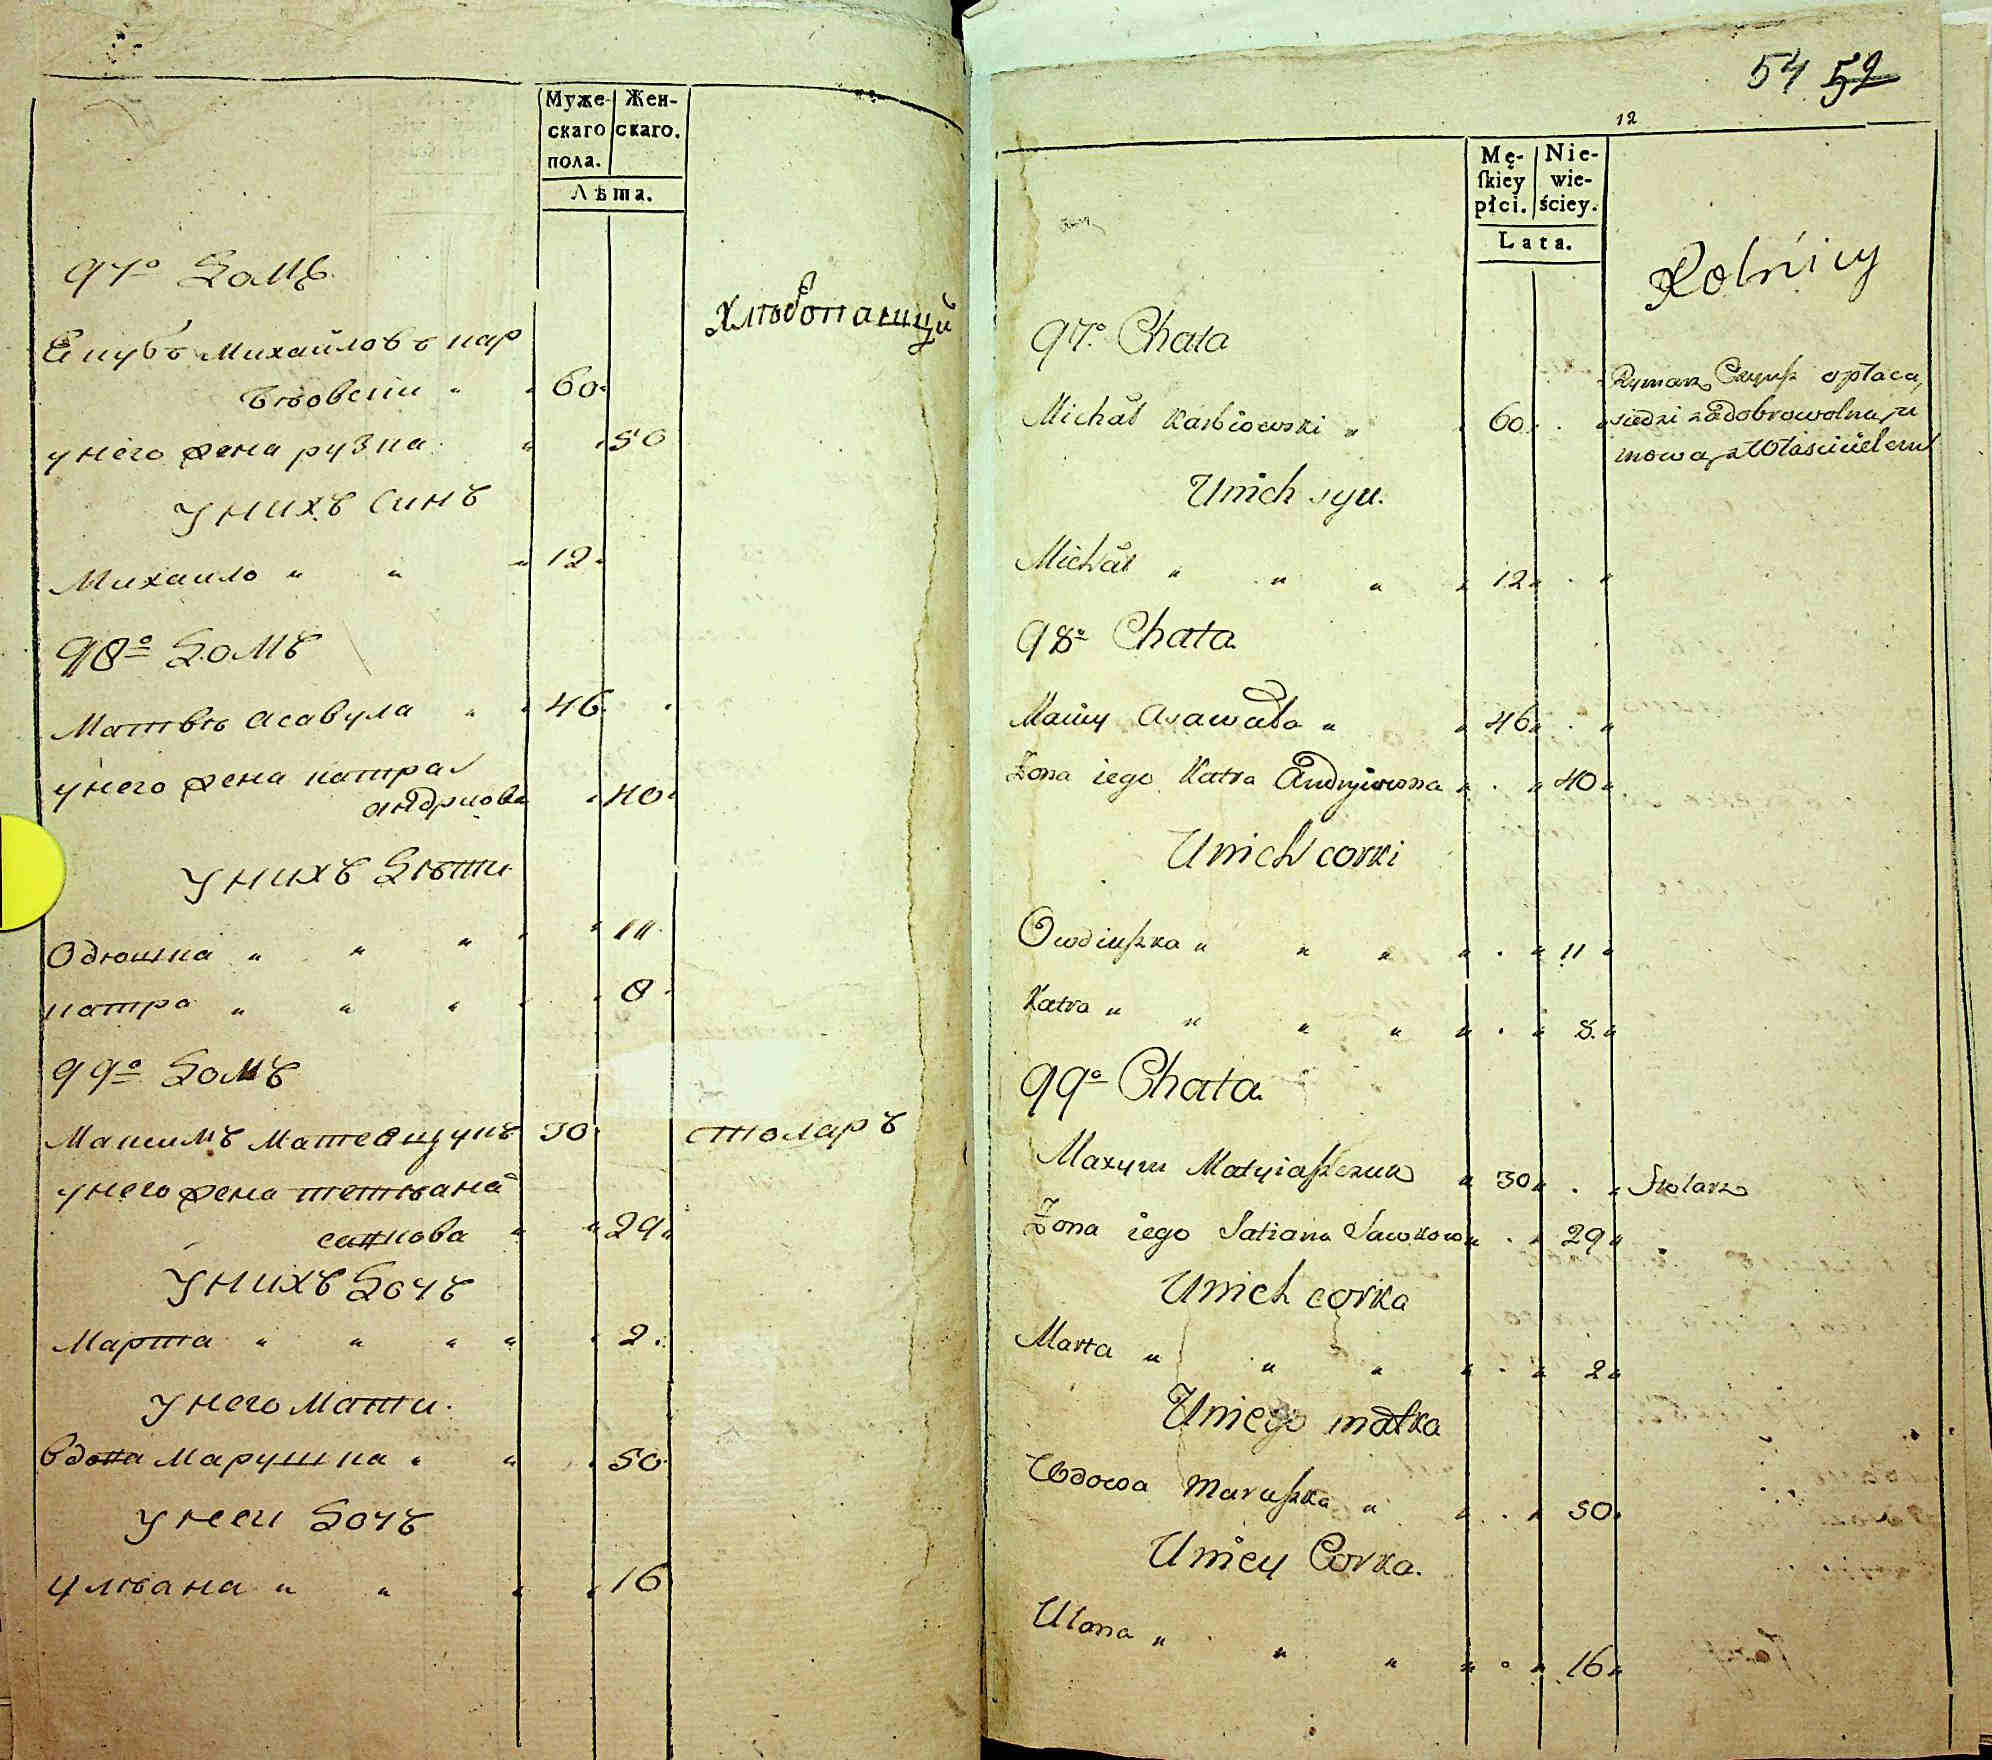 Муже- Жен-
скаго скаго.
пола.
Лѣта.
97º Домъ
Хлѣбопашцй
Якубъ Михайловъ кар
бѣовскiи " " 60
у него жена рузка " 50
У нихъ синъ
Михаило " " " 12
98º Домъ
Матвѣ Асавула " 46
у него жена катра
андриова 40
У нихъ Дѣти
Одюшка " " " 11
катра " " " 8
99º Домъ
Максимъ Матеящукъ 30 столяръ
у него жена тетяана
савкова " 29
У нихъ Дочъ
Марта " " " " 2
У него Мати
вдова Марушка " " 50
У неи Дочъ
Уляана " " " 16
54 52
12
Mę- Nie-
ſkiey wie-
płci. ściey.
Lata.
Rolnicy
97º Chata
Rymarz Czynsz opłaca,
siedzi za dobrowolną u
mową z Włascicielem
Michał Karbiowski " 60
U nich syn
Michał " " " 12
98º Chata
Maciey Asawuła " 46
Zona iego Katra Andryiowna 40
U nich corki
Owdiuszka " " " 11
Katra " " " " 8
99º Chata
Maxym Matyiaszczuk " 30 Stolarz
Zona iego Tatiana Sawkow 29
U nich corka
Marta " " " 2
U niego matka
Wdowa Maruszka " 50
U niey Corka.
Ulana " " " 16